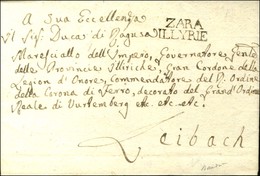 A Sua Eccellenza
Il Sig.r Duca di Ragusa
ZARA
ILLYRIE
Maresciallo dell'Impero, Governatore Gen.le
delle Provincie Illiriche, Gran Cordone della
Legion d'Onore, Commendatore del R. Ordine
della Corona di Ferro, decorato del Grand'Ordine
Reale di Wurtemberg etc. etc. etc.
Leibach